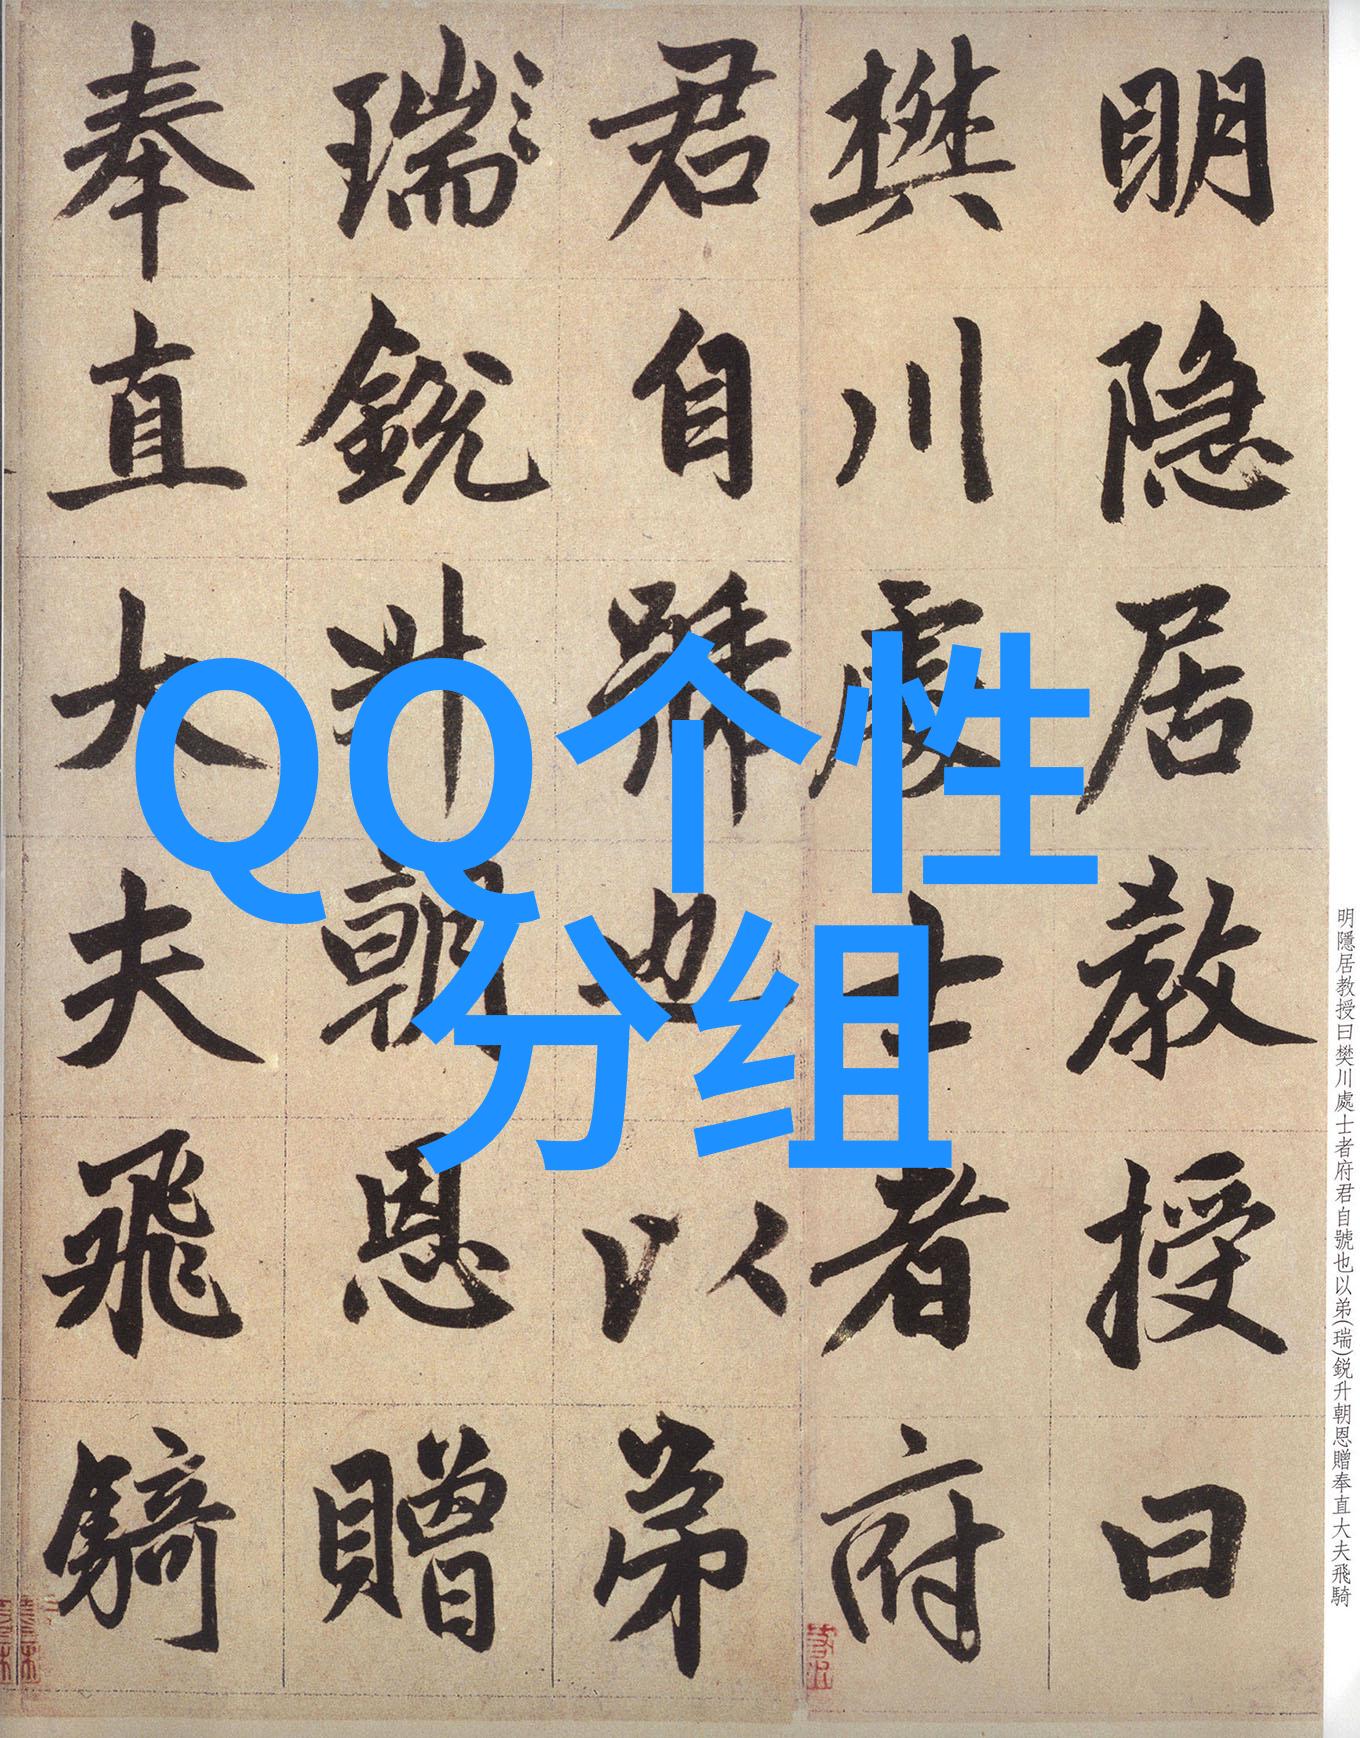 明隐居教授曰
樊川處士者府
君自號也以弟
瑞鋭升朝恩贈
奉直大夫飛騎
QQ个性
分组
明隱居教授曰樊川處士者府君自號也以弟(瑞)鋭升朝恩贈奉直大夫飛騎